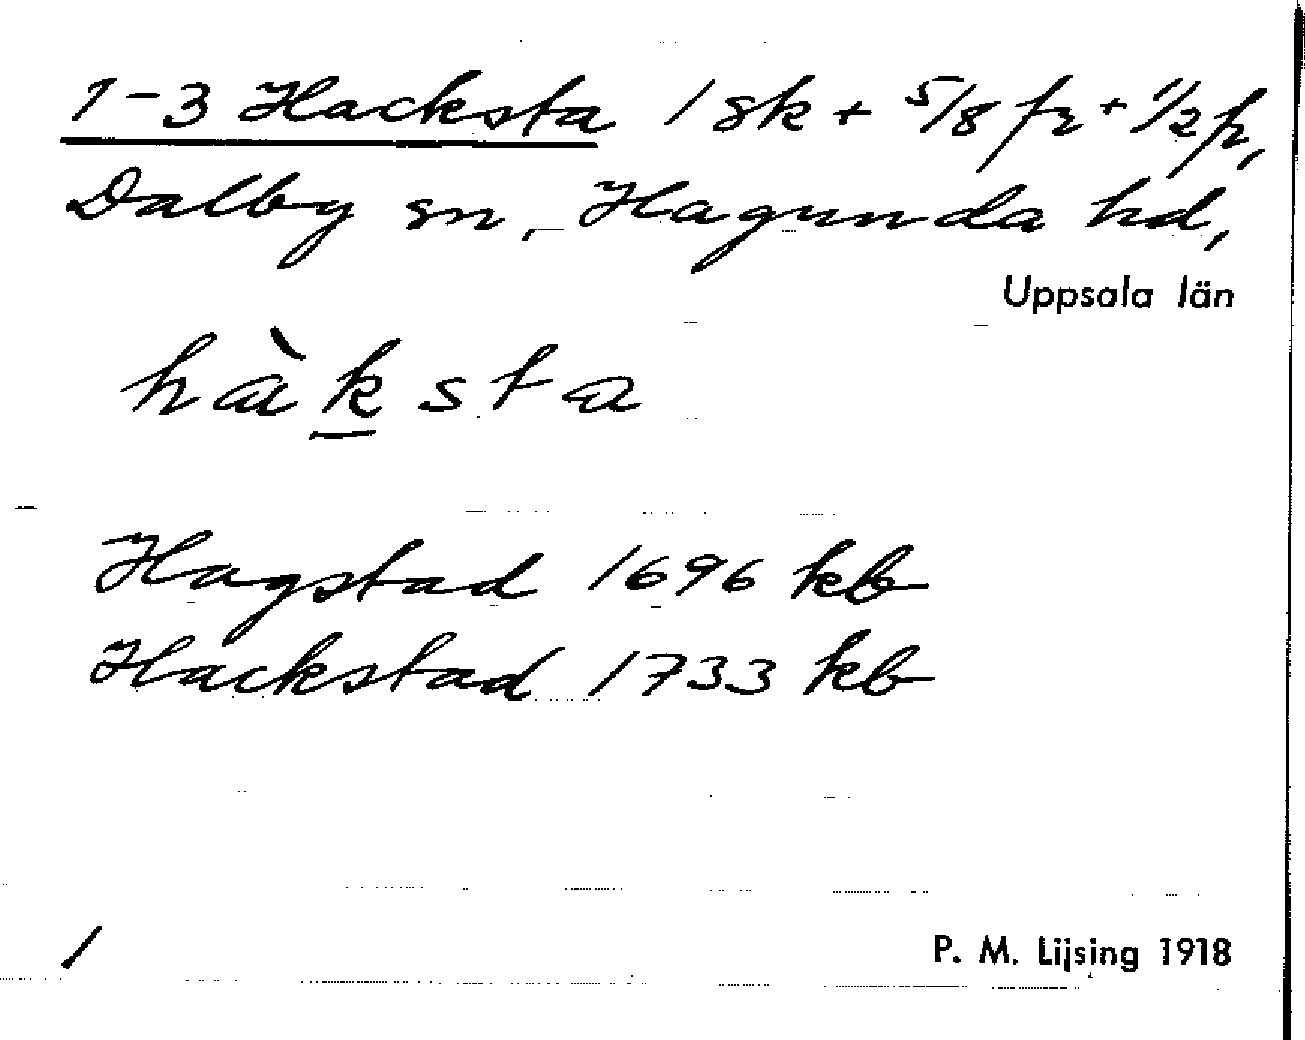 1-3 Hacksta 1 sk + 5/8 fr + 1/2 fr,
Dalby sn, Hagunda hd,
Uppsala län
hàksta
Hagstad 1696 kb
Hackstad 1733 kb
/
P. M. Lijsing 1918